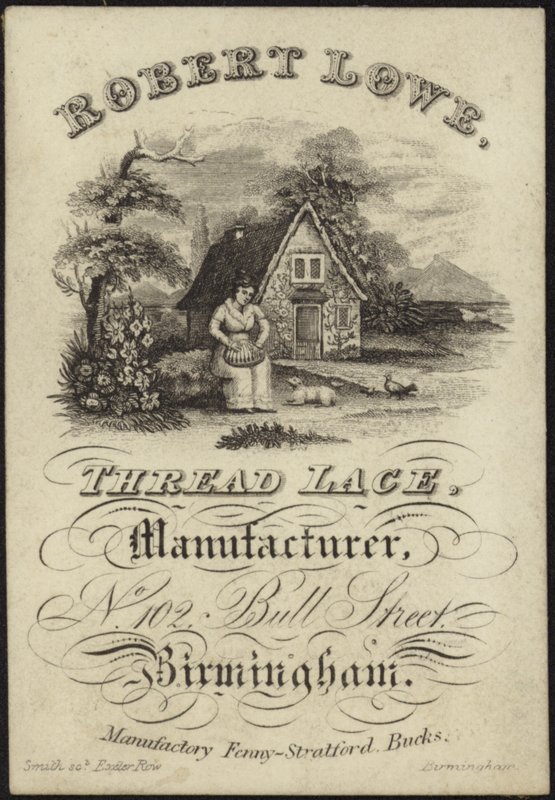 ROBERT LOWE,
THREAD LACE,
Manufacturer,
No. 102, Bull Street,
Birmingham.
Manufactory Fenny-Stratford. Bucks.
Smith sct. Exeter Row Birmingham